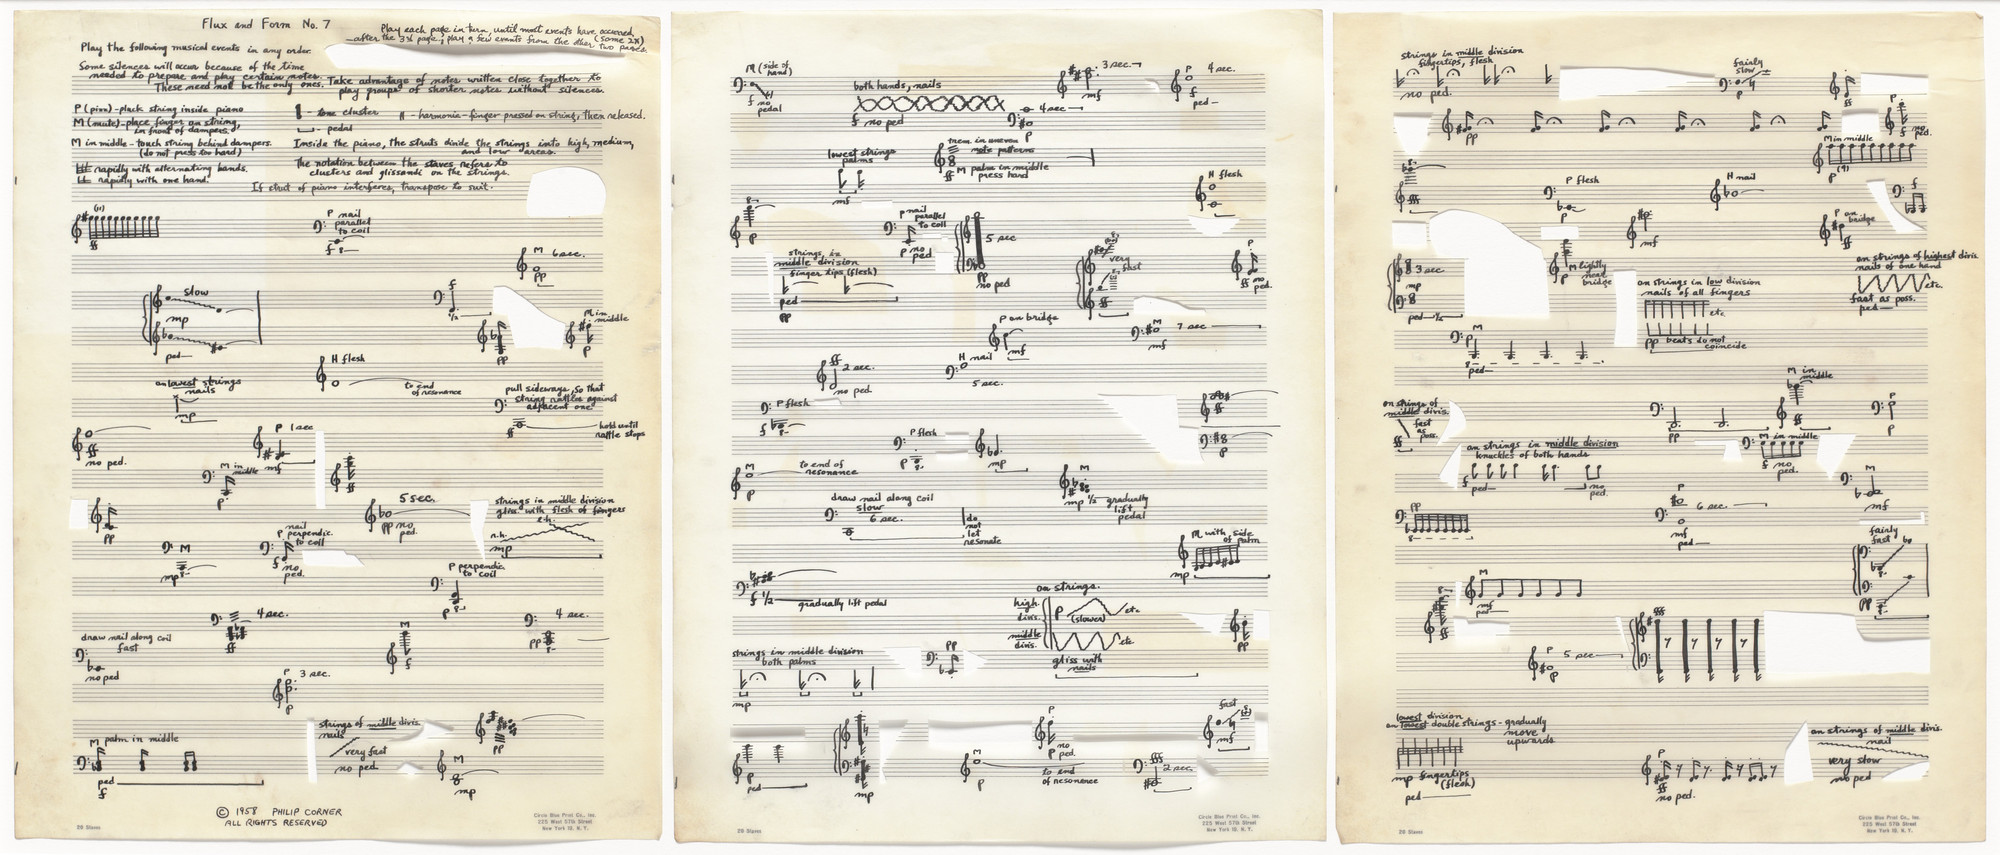 Flux and Form No. 7
Play each page in turn, until most events have occurred,
(some 2X)
after the 3rd page, play a few events from the other two pages.
Play the following musical events in any order.
Some silences will occur because of the time
needed to prepare and play certain notes.
These need not be the only ones.
Take advantage of notes written close together to
play groups of shorter notes without silences.
P (pizz) - pluck string inside piano
M (mute) - place finger on string,
in front of dampers.
M in middle - touch string behind dampers.
(do not press too hard)
rapidly with alternating hands.
rapidly with one hand.
cluster
pedal
H - harmonic - finger pressed on string, then released.
Inside the piano, the struts divide the strings into high, medium,
and low areas.
The notation between the staves refers to
clusters and glissandi on the strings.
If strut of piano interferes, transpose to suit.
(11)
ff
P nail
parallel
to coil
f
M 6 sec.
pp
slow
mp
ped
f
1/2
pp
M in
middle
P
H flesh
to end
of resonance
on lowest strings
nails
mp
pull sideways, so that
string rattles against
adjacent one
ff
hold until
rattle stops
ff
no ped.
P 1 sec
mf
M in
middle
P
f
pp
5 sec.
pp no
ped.
strings in middle division
gliss. with flesh of fingers
r.h.
mp
M
mp
nail
P perpendic.
to coil
f no
ped.
P perpendic
to coil
P
4 sec.
ff
4 sec.
pp
draw nail along coil
fast
no ped
M
f
P 3 sec.
P
strings of middle divis.
nails
very fast
no ped
pp
M palm in middle
ped
f
M
mp
© 1958 PHILIP CORNER
ALL RIGHTS RESERVED
28 Staves
Circle Blue Print Co., Inc.
225 West 57th Street
New York 19, N. Y.
M (side of
hand)
f no
pedal
both hands, nails
f no ped
3 sec.
mf
4 sec
P
P 4 sec.
f
ped
lowest strings
palms
mf
trem. in uneven
note patterns
ff M palm in middle
press hard
H flesh
f
P
P nail
parallel
to coil
P no
ped.
5 sec
pp
no ped
strings in
middle division
finger tips (flesh)
ped
pp
very
fast
ff
P
f
no
ped.
P on bridge
mf
M 7 sec
mf
ff
2 sec.
no ped.
H nail
5 sec.
P flesh
f
P flesh
P
mp
f
M
P
to end of
resonance
M
mp 1/2 gradually
lift
pedal
draw nail along coil
slow
6 sec.
do
not
let
resonate
M with side
of palm
mp
f 1/2
gradually lift pedal
on strings.
high.
divis.
P
(slower)
etc.
middle
divis.
etc
gliss with
nails
pp
strings in middle division
both palms
pp
mp
P
ped
mp
P
no
ped.
M
P
to end
of resonance
fast
mf
fff
2 sec.
28 Staves
Circle Blue Print Co., Inc.
225 West 57th Street
New York 19, N. Y.
strings in middle division
fingertips, flesh
no ped.
fairly
slow
P
ff
pp
f no
ped.
M in middle
P (9)
fff
P flesh
P
H nail
f
mf
P on
bridge
ff
3 sec
mp
ped 1/2
M lightly
near
bridge
P
on strings in low division
nails of all fingers
etc.
pp beats do not
coincide
on strings of highest divis.
nails of one hand
etc.
fast as poss.
ped
M
P
ped
on strings of
middle divis.
fast
as
poss.
ff
on strings in middle division
knuckles of both hands
f
ped
no
ped.
pp
M in
middle
ff
P
P
M in middle
f no
ped.
M
mf
pp
6 sec
P
mf
ped
fairly
fast
pp
M
mf
ped
ff
P 5 sec
P
fff
lowest division
on lowest double strings - gradually
move
upwards
mp fingertips
(flesh)
ped
P
ff
no ped.
on strings of middle divis.
nail
very slow
no ped
28 Staves
Circle Blue Print Co., Inc.
225 West 57th Street
New York 19, N. Y.